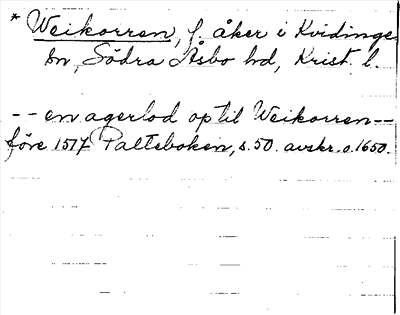 * Weikorren, f. åker i Kvidinge
sn, Södra Åsbo hd, Krist. l.
-- en agerlod op til Weikorren --
före 1517 Palteboken, s. 50. avskr. o. 1650.